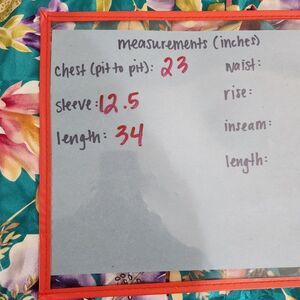 measurements (inches)
chest (pit to pit): 23
sleeve: 12.5
length: 34
waist:
rise:
inseam:
length: